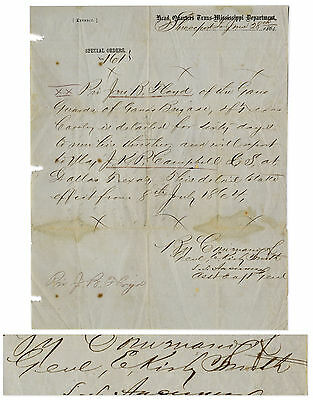 [Extract.]
Head Quarters Trans-Mississippi Department,
Shreveport La June 1864
SPECIAL ORDERS,
No. 161
XX Priv Jno B. Floyd of the Gano
Guards of Ganos Brigade, of Texas
Cavlry is detailed for sixty days
to run his thresher, and will report
to Maj J. K. P. Campbell C.S. at
Dallas Texas. This detail to take
effect from 8th July 1864,
By Command of
Genl E Kirby Smith
Asst Adjt Genl
Priv J. B. Floyd
By Command of
Genl, E Kirby Smith